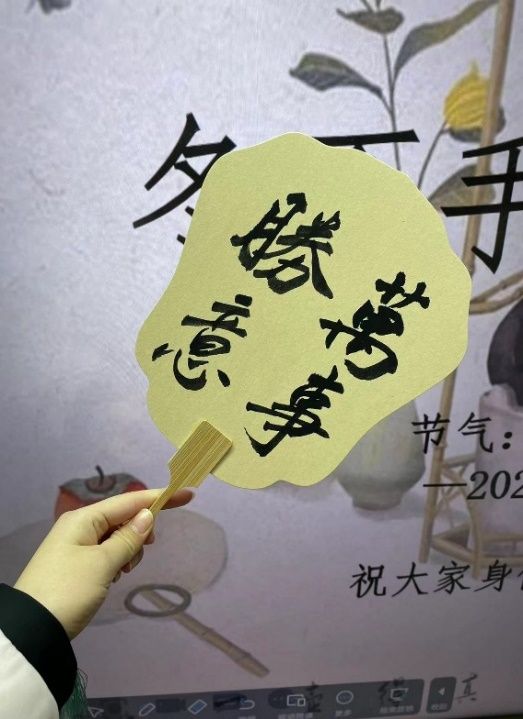 萬事
勝意
冬
手
节气：
—202
祝大家身